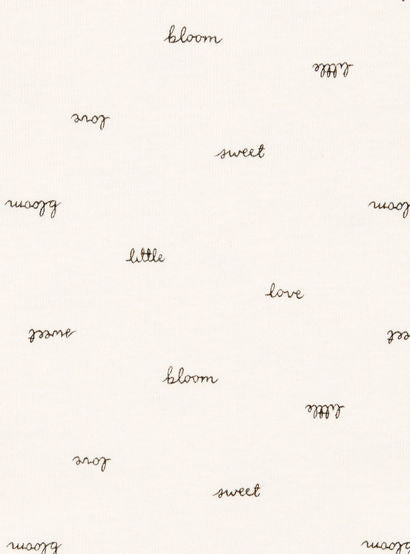 bloom
little
love
sweet
bloom
bloom
little
love
sweet
bloom
little
love
sweet
bloom
bloom